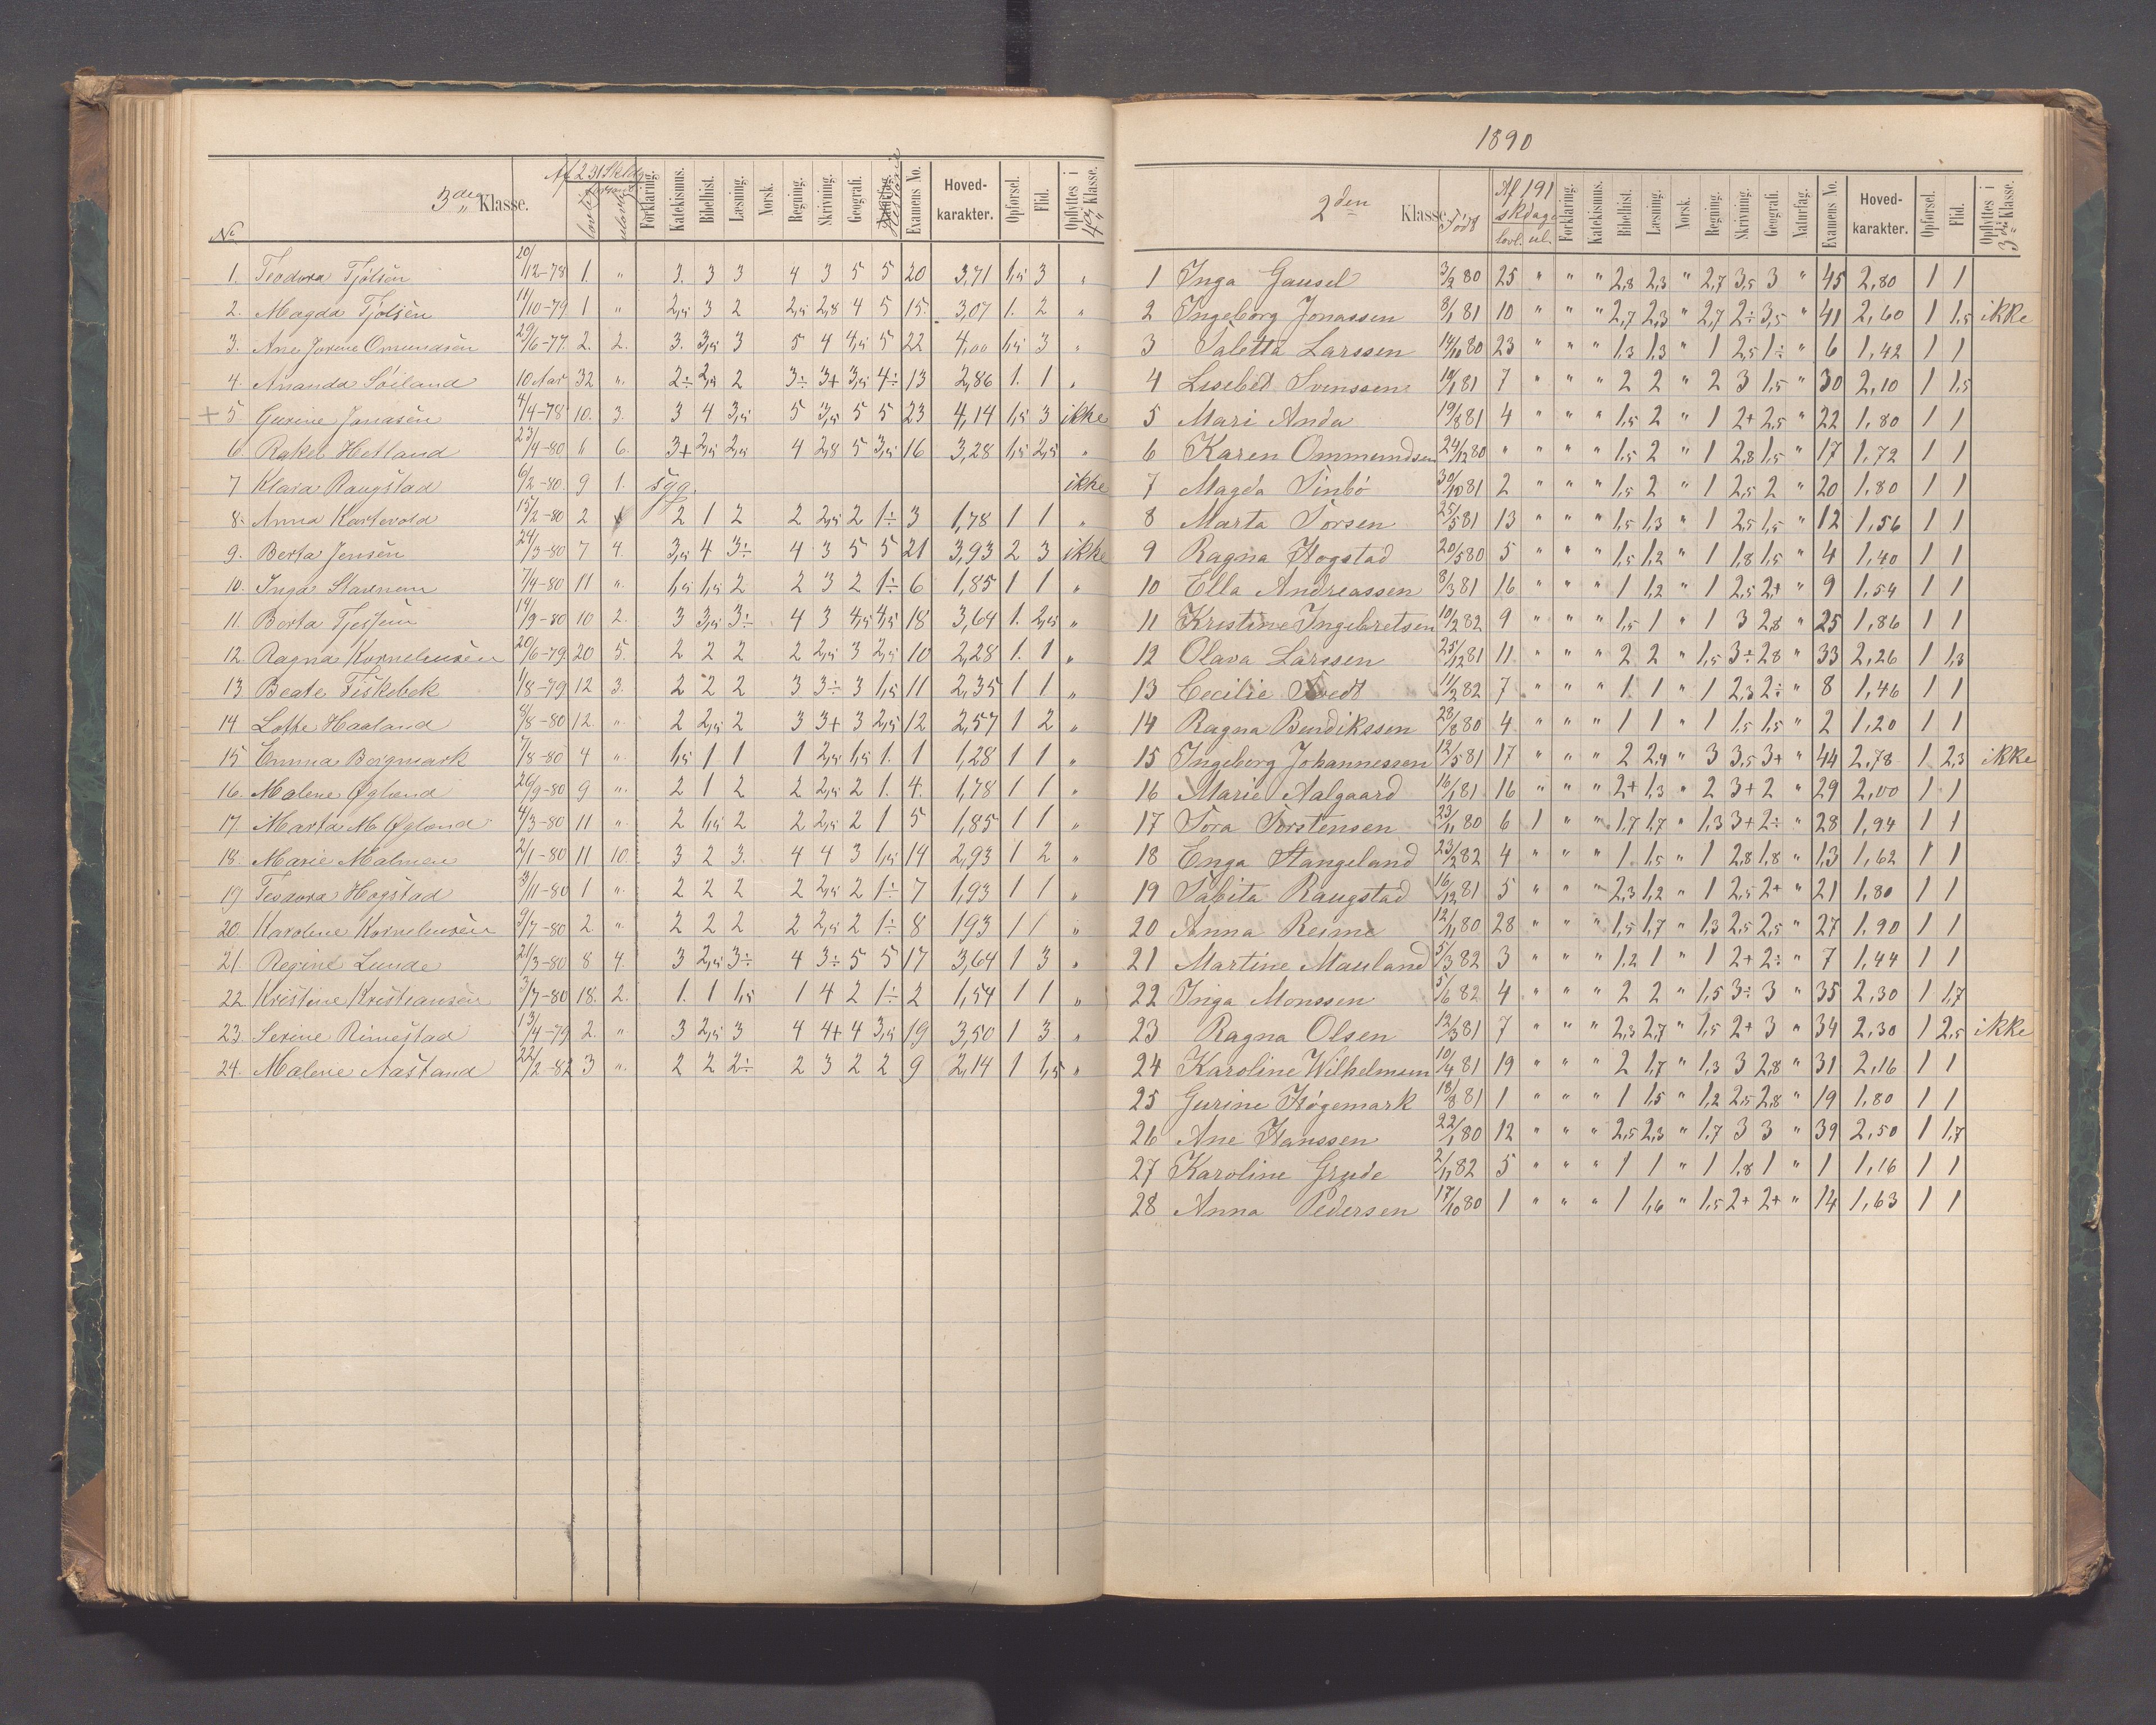 Af 231 Skoledage
3die Klasse. Forklaring. Katekismus. Bibelhist. Læsning. Norsk. Regning. Skrivning. Geografi. Historie Examens No. Hoved-karakter. Opførsel. Flid. Opflyttes i 4de Klasse.
No
1. Teodora Tjølsen 20/12-78 1. " 3. 3 3 4 3 5 5 20 3,71 1,5 3 "
2. Magda Tjølsen 14/10-79 1 " 2,5 3 2 2,5 2,8 4 5 15. 3,07 1. 2 "
3. Ane Jorine Omundsen 29/6-77. 2. 2. 3. 3,5 3 5 4 4,5 5 22 4,00 1,5 3 "
4. Ananda Soiland 10 Aar 32 ". 2÷ 2,5 2 3÷ 3+ 3,5 4÷ 13 2,86 1. 1 "
+ 5 Gurine Jonasen 4/4-78 10. 3. 3 4 3,5 5 3,5 5 5 23 4,14 1,5 3 ikke
6. Rakel Hetland 23/4-80 " 6. 3+ 2,5 2,5 4 2,8 5 3,5 16 3,28 1,5 2,5 "
7 Klara Raugstad 6/2-80. 9 1. syg. ikke
8. Anna Kartevold 15/2-80 2 2 1 2 2 2,5 2 1÷ 3 1,78 1 1 "
9. Berta Jensen 24/3-80 7 4. 3,5 4 3÷ 4 3 5 5 21 3,93 2 3 ikke
10. Inga Starenem 7/4-80 11 ". 1,5 1,5 2 2 3 2 1÷ 6 1,85 1 1 "
11. Berta Tjessem 14/9-80 10 2. 3 3,5 3÷ 4 3 4,5 4,5 18 3,64 1. 2,5 "
12. Ragna Kornelìusen 20/6-79 20 5. 2 2 2 2 2,5 3 2,5 10 2,28 1. 1 "
13 Beate Fiskebek 1/8-79 12 3. 2 2 2 3 3÷ 3 1,5 11 2,35 1 1 "
14 Lotte Haaland 8/8-80 12. ". 2 2,5 2 3 3+ 3 2,5 12 2,57 1 2 "
15 Emma Bergmark 7/8-80 4 ". 1,5 1 1 1 2,5 1,5 1. 1 1,28 1 1 "
16. Malene Øgland 26/9-80 9 ". 2 1 2 2 2,5 2 1. 4. 1,78 1 1 "
17. Marta M. Øgland 4/3-80 11 ". 2 1,5 2 2 2,5 2 1 5 1,85 1 1 "
18. Marie Malmen 2/1-80 11 10. 3 2 3. 4 4 3 1,5 14 2,93 1 2 "
19 Teodora Hogstad 3/11-80 1 ". 2 2 2 2 2,5 2 1÷ 7 1,93 1 1 "
20. Karoline Korneliusen 9/7-80 2. ". 2 2 2 2 2,5 2 1÷ 8 193 1 1 "
21. Regine Lunde 21/3-80 8 4. 3 2,5 3÷ 4 3÷ 5 5 17 3,64 1 3 "
22 Kristine Kristiansen 3/7-80 18. 2. 1. 1 1,5 1 4 2 1÷ 2 1,54 1 1 "
23. Serine Rimestad 13/4-79 2. " 3 2,5 3 4 4+ 4 3,5 19 3,50 1 3. "
24. Malene Aastand 22/2-82 3 ". 2 2 2÷ 2 3 2 2 9 2,14 1 1,5 "
1890
2den Klasse. Født Af 191 skdage lovl. ul. Forklaring. Katekismus. Bibelhist. Læsning. Norsk. Regning. Skrivning. Geografi. Naturfag. Examens No. Hoved-karakter. Opførsel. Flid. Opflyttes i 3die Klasse.
1 Inga Gausel 3/2 80 25 " " " 2,8 2,3 " 2,7 3,5 3 " 45 2,80 1 1
2 Ingeborg Jonassen 8/1 81 10 " " " 2,7 2,3 " 2,7 2÷ 3,5 " 41 2,60 1 1,5 ikke
3 Saletta Larssen 14/10 80 23 " " " 1,3 1,3 " 1 2,5 1÷ " 6 1,42 1 1
4 Lisebet Svenssen 10/1 81 7 " " " 2 2 " 2 3 1,5 " 30 2,10 1 1,5
5 Mari Anda 19/8 81 4 " " " 1,5 2 " 1 2+ 2,5 " 22 1,80 1 1
6 Karen Ommundsen 24/12 80 " " " " 1,5 2 " 1 2,8 1,5 " 17 1,72 1 1
7 Magda Sinbö 30/10 81 2 " " " 1,5 2 " 1 2,5 2 " 20 1,80 1 1
8 Marta Torsen 25/5 81 13 " " " 1,5 1,3 " 1 2,5 1,5 " 12 1,56 1 1
9 Ragna Hogstad 20/5 80 5 " " " 1,5 1,2 " 1 1,8 1,5 " 4 1,40 1 1
10 Ella Andreassen 8/3 81 16 " " " 1 1,2 " 1 2,5 2+ " 9 1,54 1 1
11 Kristine Ingebretsen 10/2 82 9 " " " 1,5 1 " 1 3 2,8 " 25 1,86 1 1
12 Olava Larssen 25/12 81 11 " " " 2 2 " 1,5 3÷ 2,8 " 33 2,26 1 1,3
13 Cecilie Tvedt 11/2 82 7 " " " 1 1 " 1 2,3 2÷ " 8 1,46 1 1
14 Ragna Bendikssen 28/8 80 4 " " " 1 1 " 1 1,5 1,5 " 2 1,20 1 1
15 Ingeborg Johannessen 12/5 81 17 " " " 2 2,4 " 3 3,5 3+ " 44 2,78 1 2,3 ikke
16 Marie Aalgaard 16/1 81 16 " " " 2+ 1,3 " 2 3+ 2 " 29 2,00 1 1
17 Tora Torstensen 23/11 80 6 1 " " 1,7 1,7 " 1,3 3+ 2÷ " 28 1,94 1 1
18 Enga Stangeland 23/2 82 4 " " " 1 1,5 " 1 2,8 1,8 " 13 1,62 1 1
19 Tabita Raugstad 16/12 81 5 " " " 2,3 1,2 " 1 2,5 2+ " 21 1,80 1 1
20 Anna Reime 12/11 80 28 " " " 1,5 1,7 " 1,3 2,5 2,5 " 27 1,90 1 1
21 Martine Mauland 5/3 82 3 " " " 1,2 1 " 1 2+ 2÷ " 7 1,44 1 1
22 Inga Monssen 5/6 82 4 " " " 2 2 " 1,5 3÷ 3 " 35 2,30 1 1,7
23 Ragna Olsen 12/3 81 7 " " " 2,3 2,7 " 1,5 2+ 3 " 34 2,30 1 2,5 ikke
24 Karoline Wilhelmsen 10/4 81 19 " " " 2 1,7 " 1,3 3 2,8 " 31 2,16 1 1
25 Gurine Høgemark 18/8 81 1 " " " 1 1,5 " 1,2 2,5 2,8 " 19 1,80 1 1
26 Ane Hanssen 22/1 80 12 " " " 2,5 2,3 " 1,7 3 3 " 39 2,50 1 1,7
27 Karoline Grude 2/11 82 5 " " " 1 1 " 1 1,8 1 " 1 1,16 1 1
28 Anna Pedersen 17/10 80 1 " " " 1 1,6 " 1,5 2+ 2+ " 14 1,63 1 1